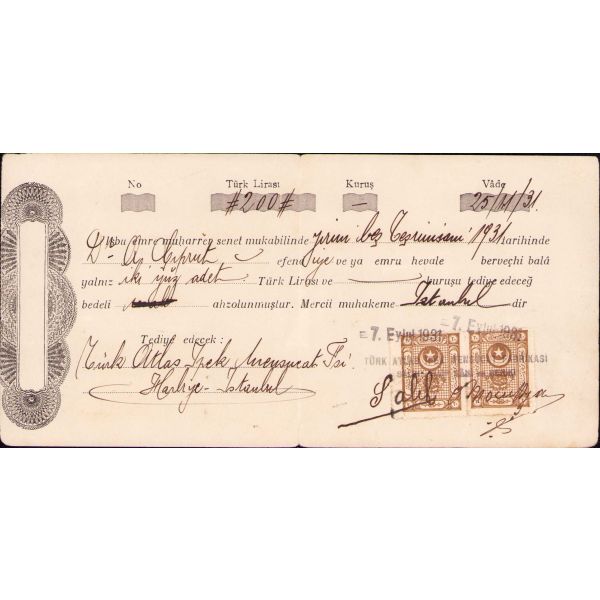 No Türk Lirası Kuruş Vâde
#200# — 25/11/31.
İşbu emre muharrer senet mukabilinde yirmi beş Teşrinisani 1931 tarihinde
Dr. Aj Ciprut efendiye ve ya emru hevale berveçhi balâ
yalnız iki yüz adet Türk Lirası ve kuruşu tediye edeceğ
bedeli ahzolunmuştur. Mercii muhakeme İstanbul dir
Tediye edecek :
Türk Atlas İpek Mensucat Fsi
Harbiye-İstanbul
=7. Eylul 1931 =7. Eylul 1931
TÜRK ATLAS
Salih